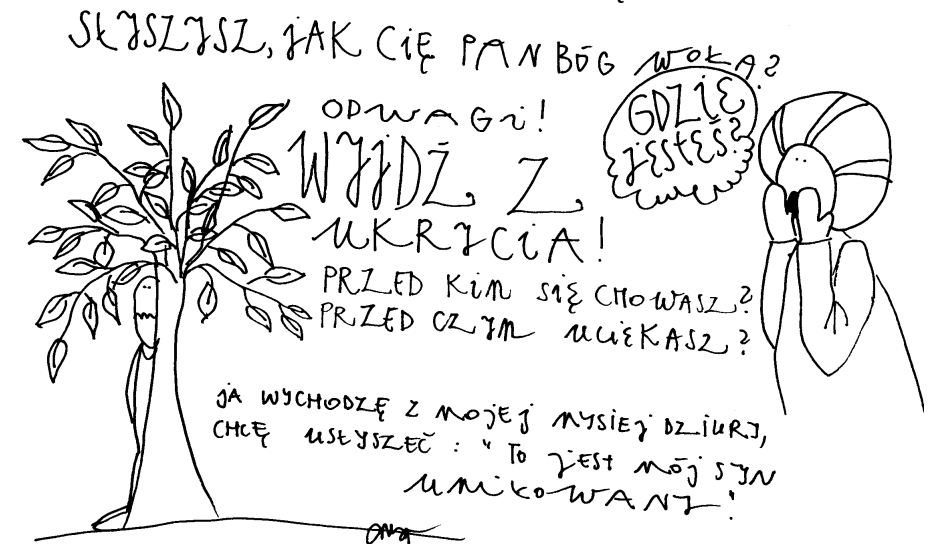 SŁYSZYSZ, JAK CIĘ PAN BÓG WOŁA?
ODWAGI!
WYJDŹ Z
UKRYCIA!
GDZIE
JESTEŚ?
PRZED KIM SIĘ CHOWASZ?
PRZED CZYM UCIEKASZ?
JA WYCHODZĘ Z MOJEJ MYSIEJ DZIURY,
CHCĘ USŁYSZEĆ: "TO JEST MÓJ SYN
UMIŁOWANY".